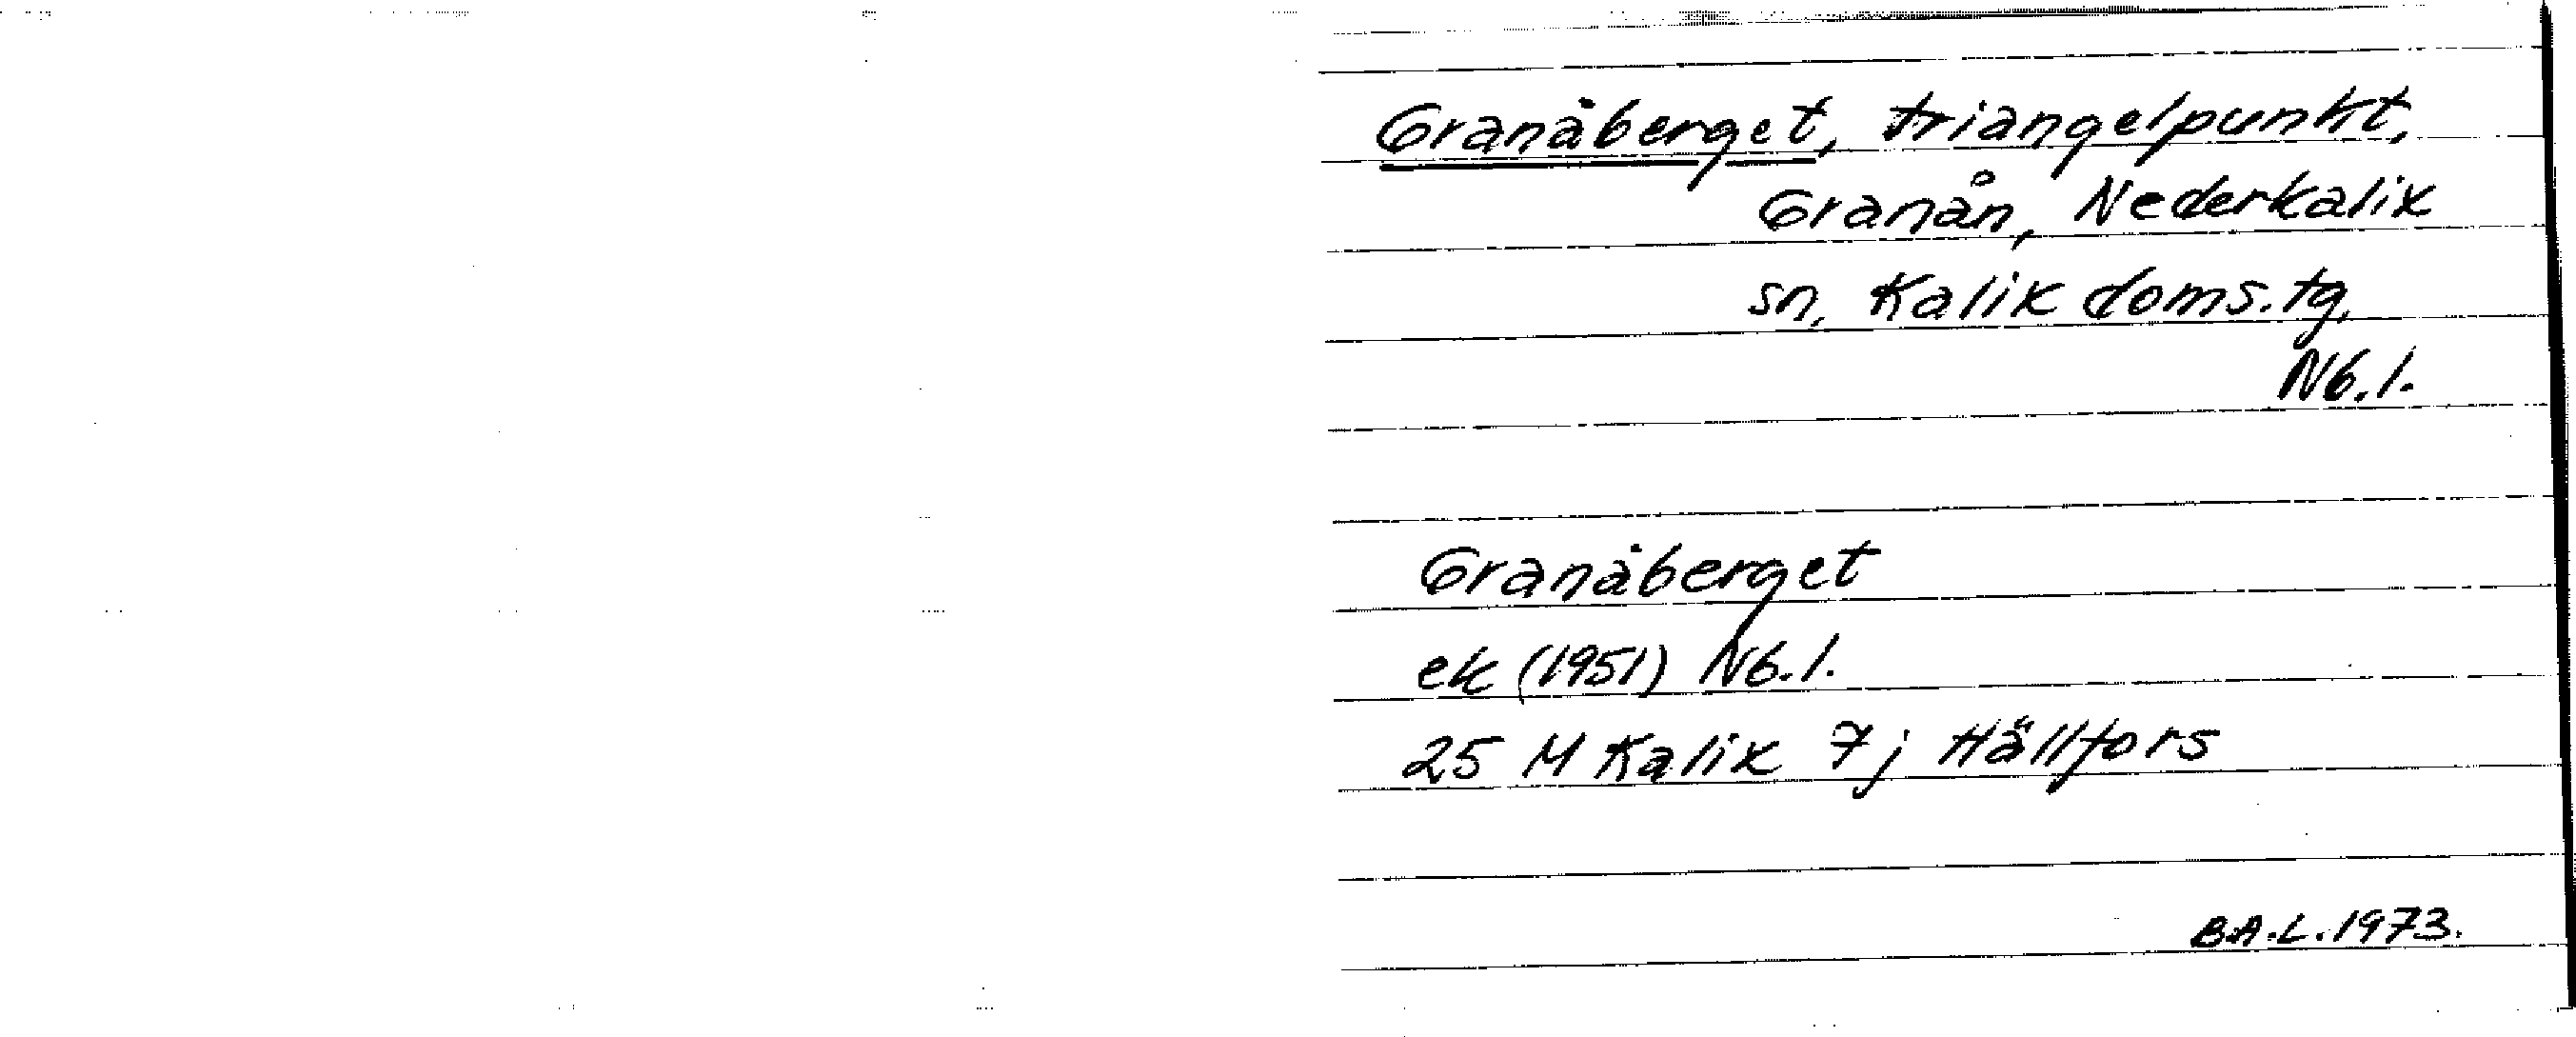 Granåberget, triangelpunkt,
Granån, Nederkalix
sn, Kalix doms.tg.
Nb.l.
Granåberget
ek (1951) Nb.l.
25 M Kalix 7j Hällfors
B.A.L. 1973.